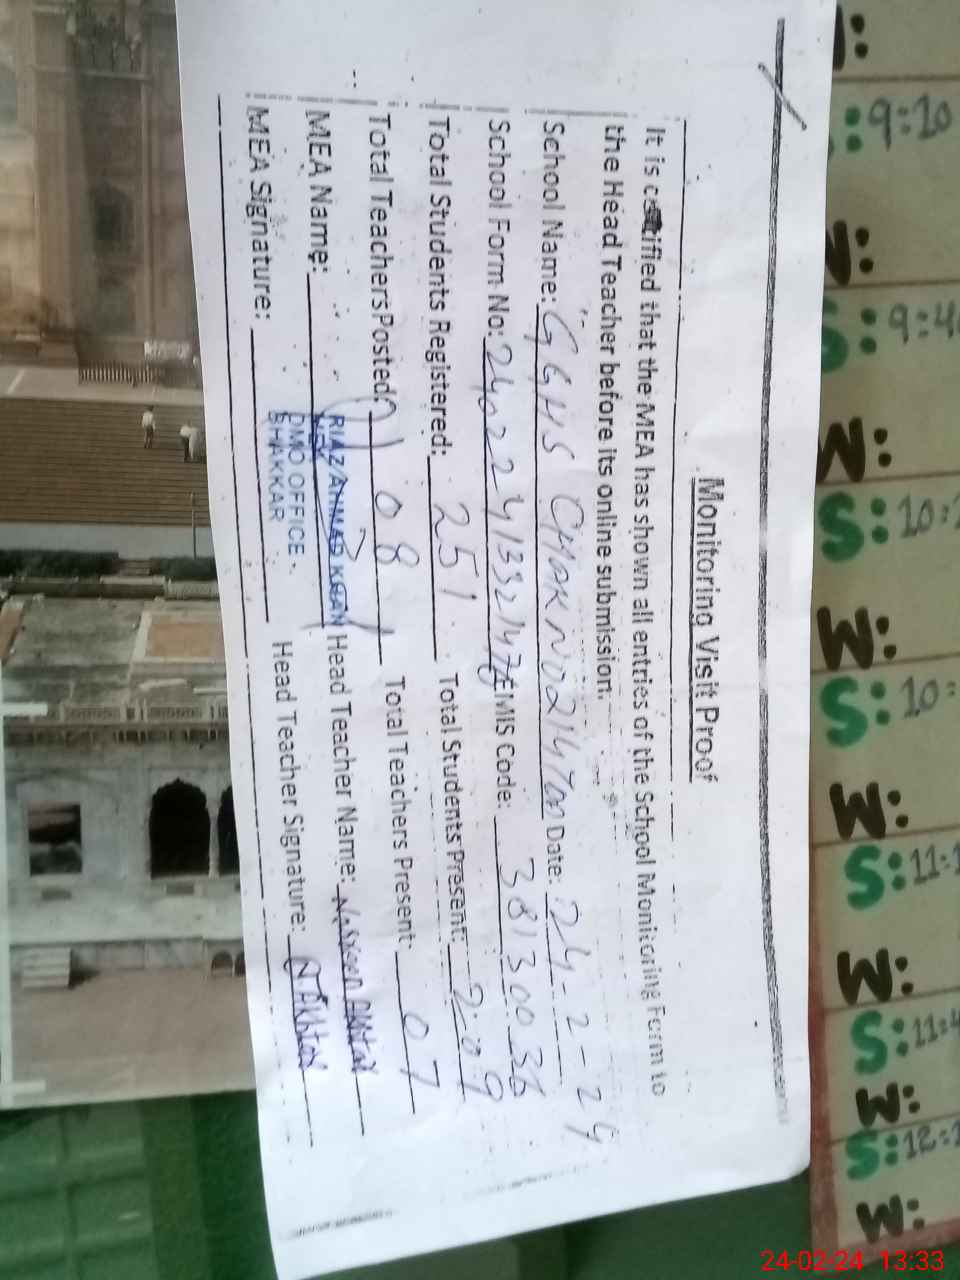 Monitoring Visit Proof
It is certified that the MEA has shown all entries of the School Monitoring Form to
the Head Teacher before its online submission.
School Name: GGHS CHAK NO 214700 Date: 24-2-24
School Form No: 2402241332147 EMIS Code: 38130036
Total Students Registered: 251 Total Students Present: 209
Total Teachers Posted: 08 Total Teachers Present: 07
MEA Name: RIAZ AHMAD KHAN Head Teacher Name: Nasreen Akhtar
MEA
DMO OFFICE.
BHAKKAR
MEA Signature: Head Teacher Signature: N.Akhtar
S: 9:10
W:
S: 9:4
W:
S: 10:
W:
S: 10:
W:
S: 11:1
W:
S: 11:4
W:
S: 12:
W:
24-02-24 13:33